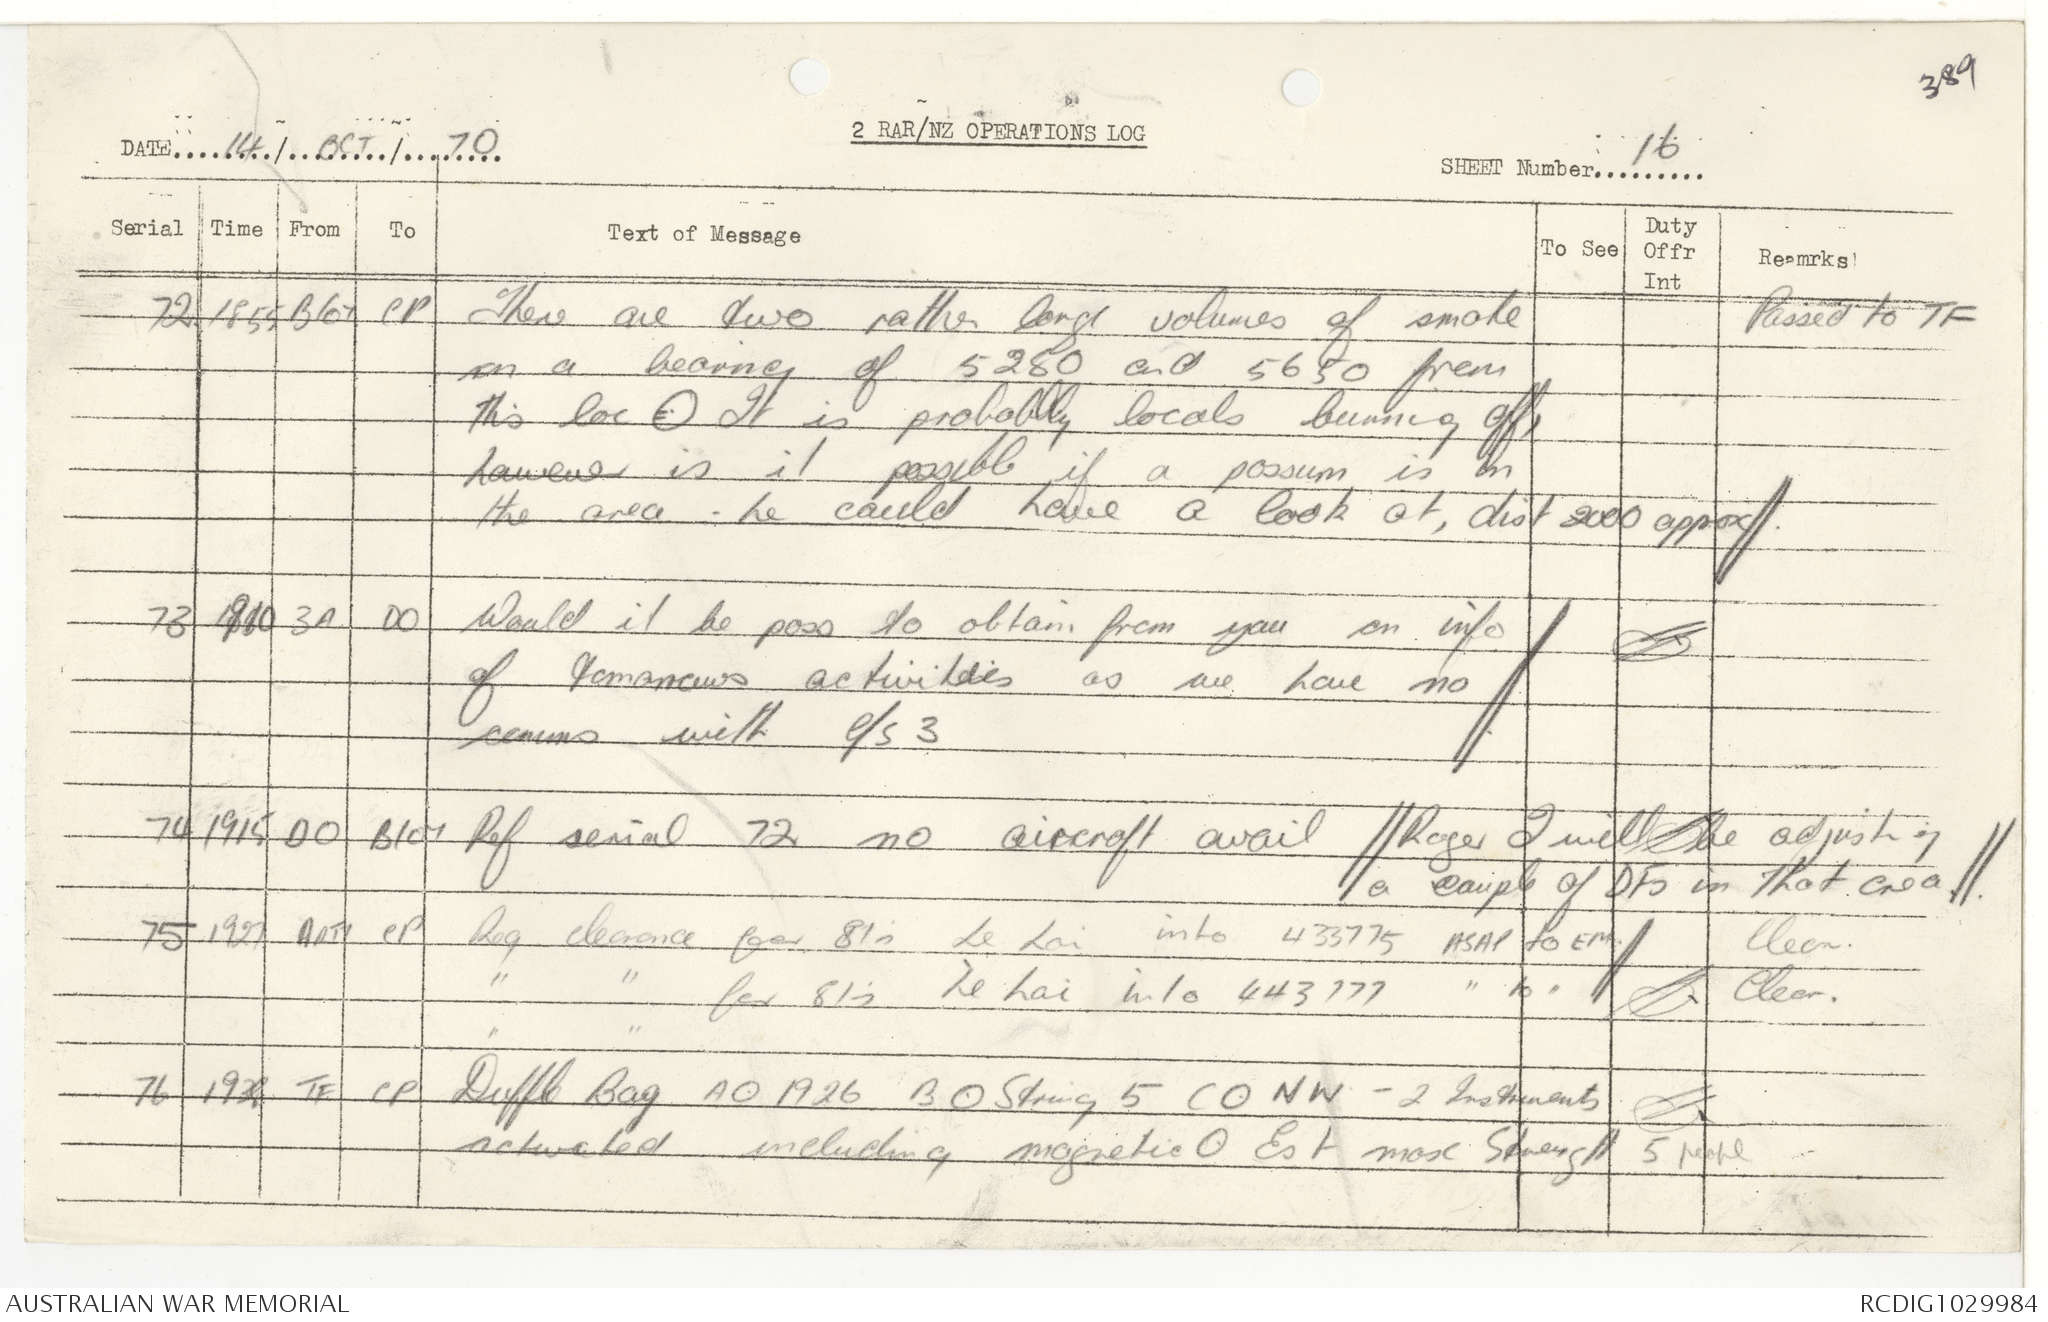 389
2 RAR/NZ OPERATIONS LOG
DATE 14 / OCT / 70
SHEET Number 16
Serial Time From To Text of Message To See Duty Offr Int Reamrks
72 1855 B107 CP There are two rather large volumes of smoke Passed to TF
on a bearing of 5280 and 5650 from
this loc It is probably locals burning off,
however is it possible if a possum is in
the area - he could have a look at, dist 2000 approx //.
73 1910 3A DO Would it be poss to obtain from you on info
of tomorrows activities as we have no
comms with C/S 3 //
74 1915 DO B107 Ref serial 72 no aircraft avail // Roger I will be adjusting
a couple of DFs in that area //.
75 1927 ARTY CP Req clearance for 81s Le Loi into 433775 ASAP to EM. // Clear.
" " for 81s Le Loi into 443777 " to " Clear.
" "
76 TF CP Duffle Bag A 1926 B String 5 C NW - 2 Instruments
activated including magnetic Est max Strength 5 people
AUSTRALIAN WAR MEMORIAL
RCDIG1029984